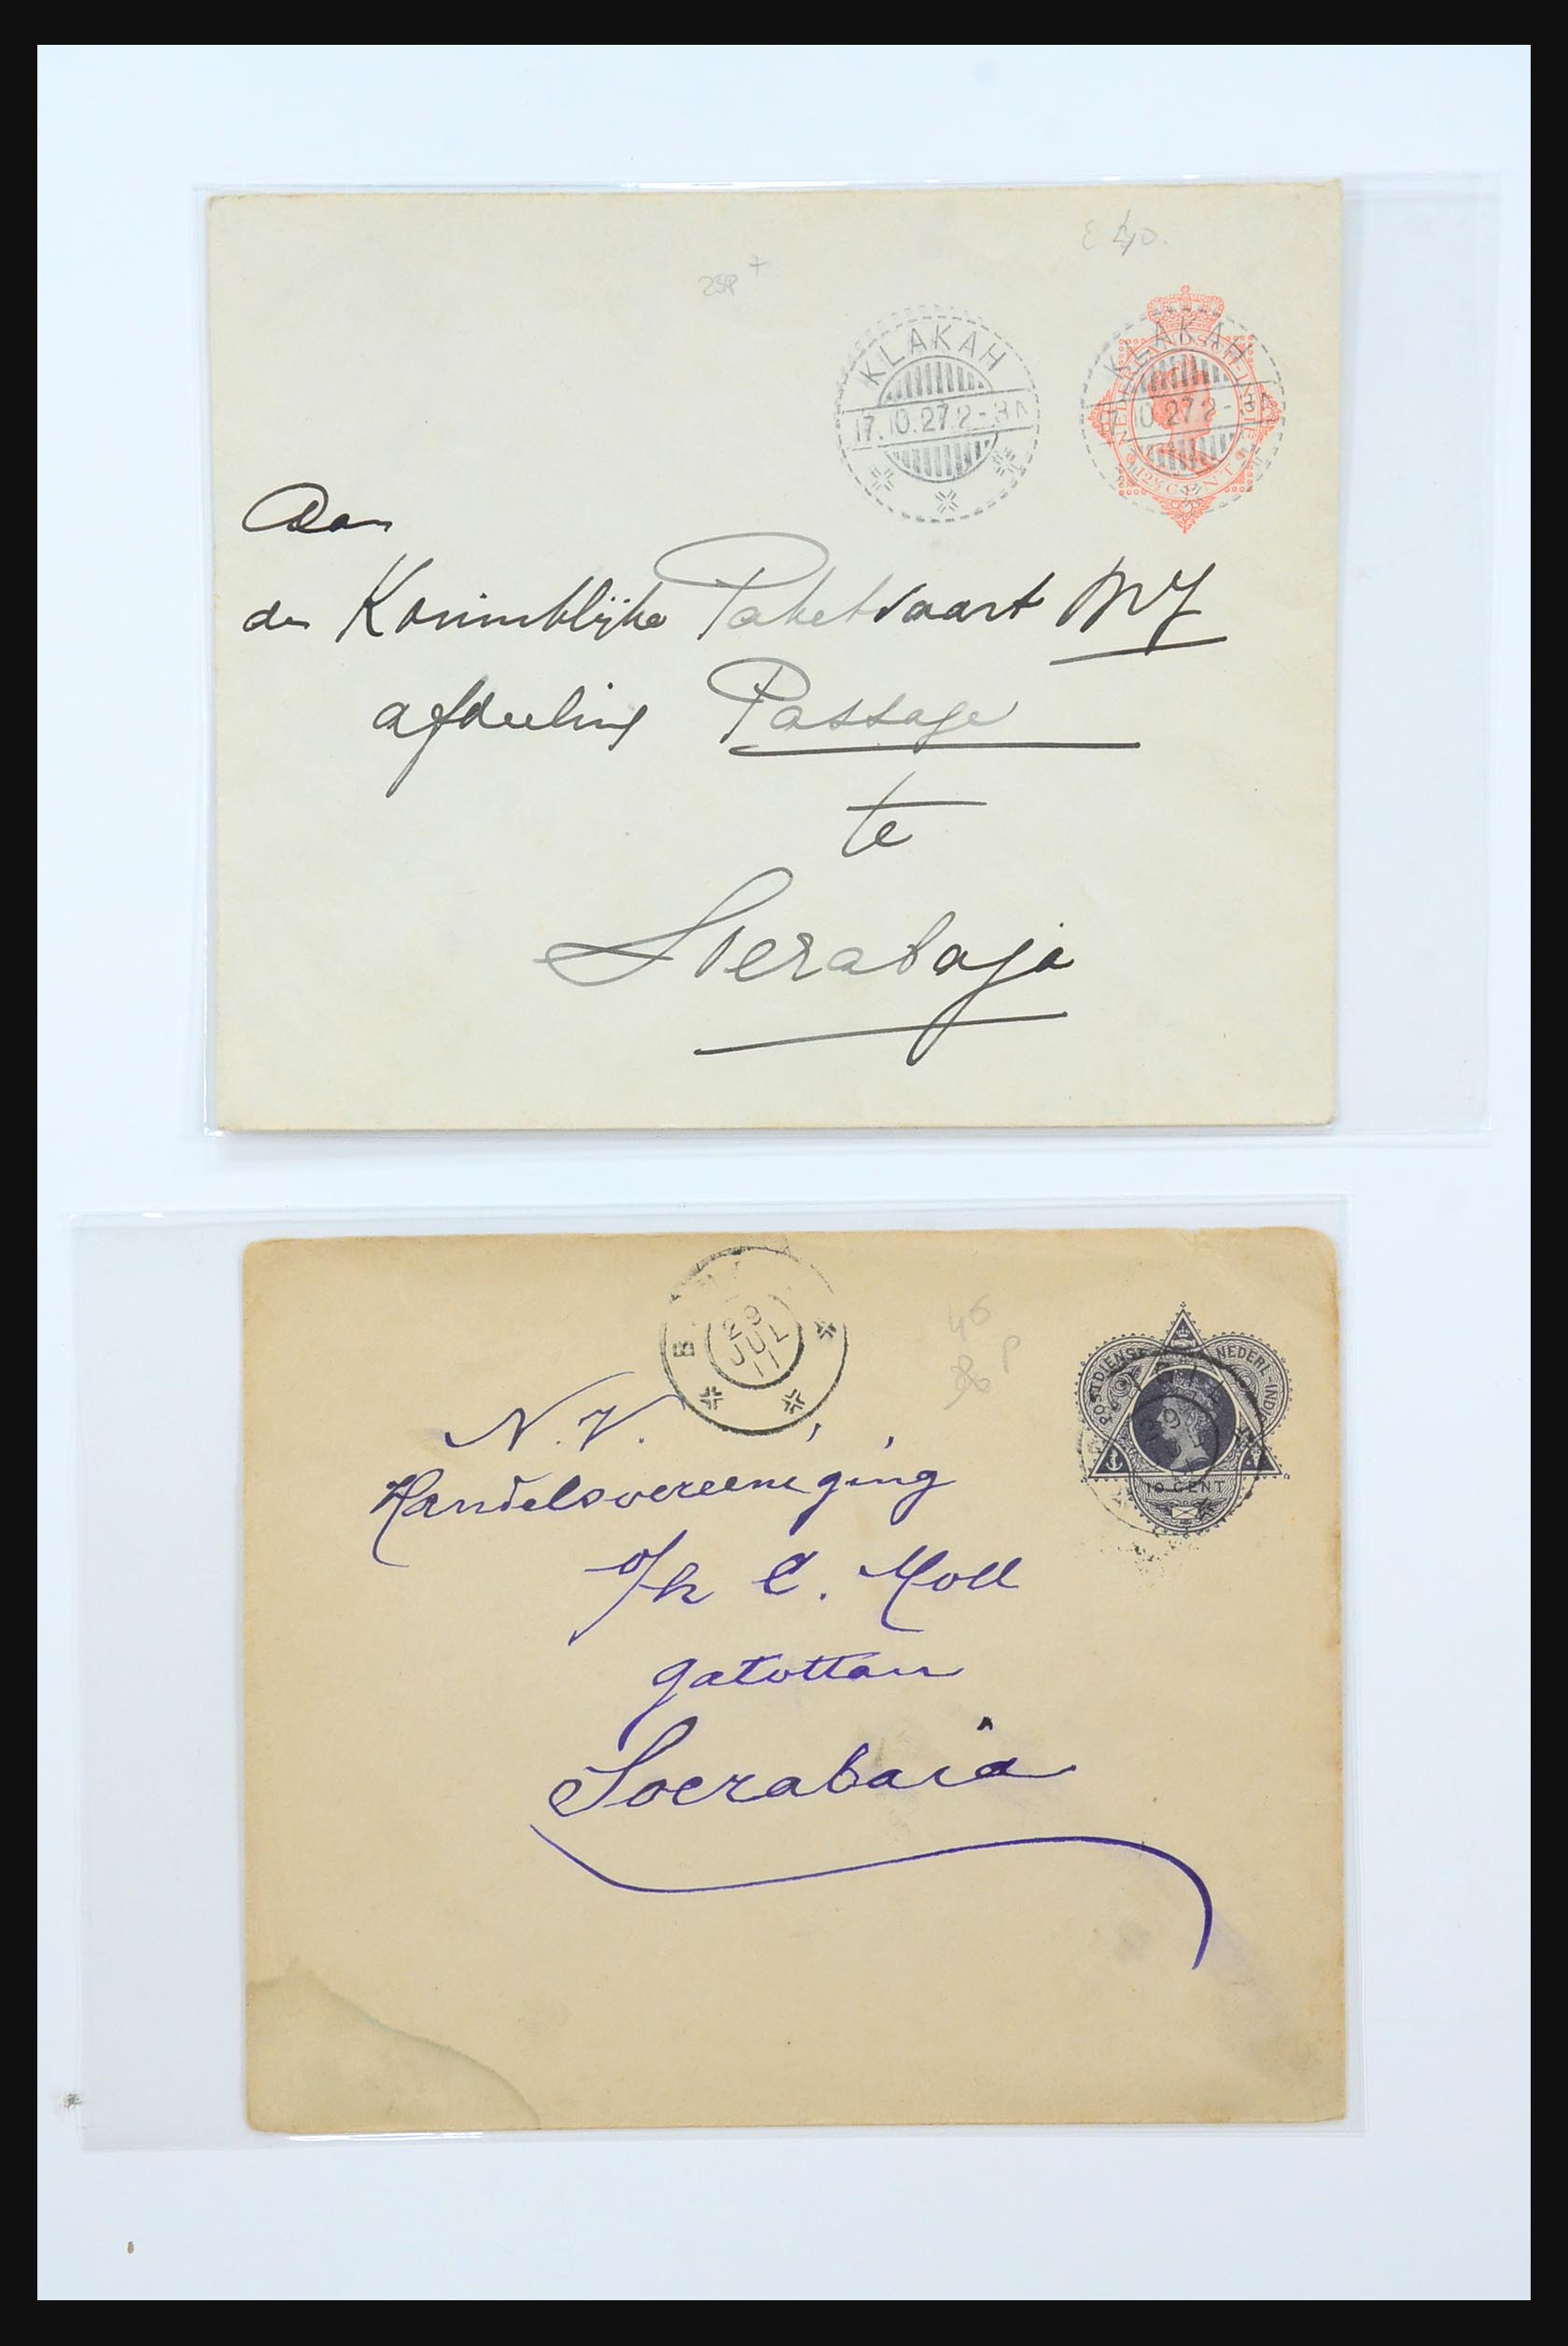 KLAKAH
17.10.27.2-3N
KLAKAH
NEDERLANDSCH-INDIE
12½ CENT
Aan
de Koninklijke Paketvaart My
afdeeling Passage
te
Soerabaja
29
JUL
11
46
P
POSTDIENST NEDERL-INDIE
10 CENT
N.V.
Handelsvereeniging
o/h C. Moll
gatottan
Soerabaia